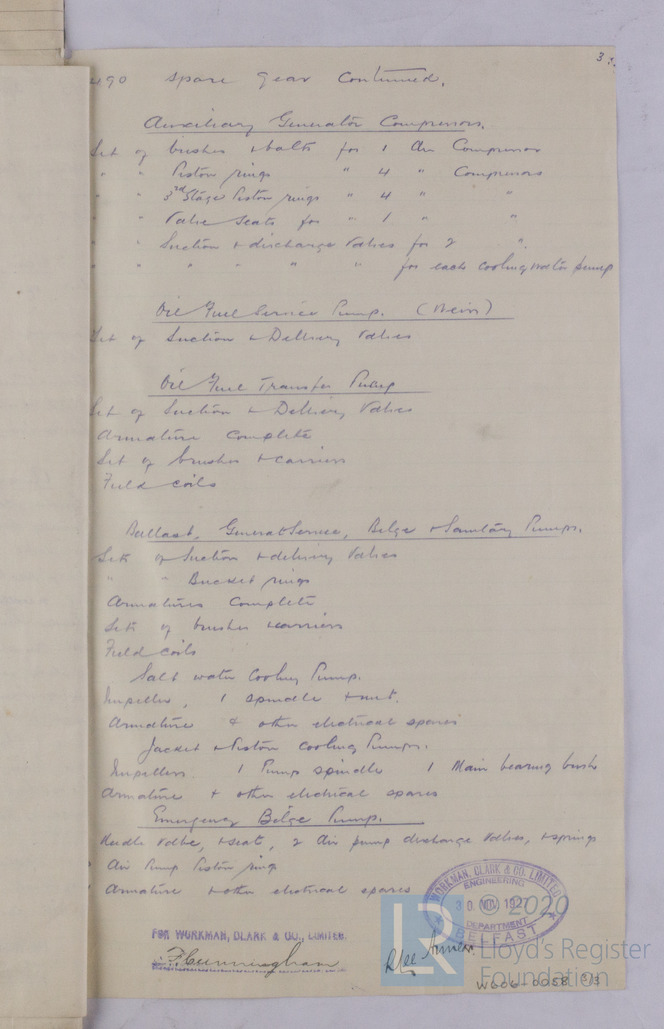 3.
490 Spare Gear Continued.
Auxiliary Generator Compressors.
Set of bushes & bolts for 1 Air Compressor
" " Piston rings " 4 " Compressors
" " 3rd Stage Piston rings " 4 " "
" " Valve Seats for " 1 " "
" " Suction & discharge Valves for 2 ".
" " " " " " for each cooling water pump
Oil Fuel Service Pump. (Weir)
Set of Suction & Delivery Valves
Oil Fuel Transfer Pump
Set of Suction & Delivery Valves
Armature Complete
Set of brushes & carriers
Field coils
Ballast, General Service, Bilge & Sanitary Pumps.
Sets of Suction & delivery Valves
" " Bucket rings
Armatures Complete
Sets of brushes & carriers
Field coils
Salt water Cooling Pump.
Impeller, 1 spindle & nut.
Armature & other electrical spares
Jacket & Piston Cooling Pumps.
Impellers 1 Pump spindle 1 Main bearing bush
Armature & other electrical spares
Emergency Bilge Pump.
Needle Valve, & seat, 2 Air pump discharge Valves, & springs
Air Pump Piston rings
Armature & other electrical spares
WORKMAN, CLARK & CO., LIMITED
ENGINEERING
30 NOV. 1927
DEPARTMENT
BELFAST
FOR WORKMAN, CLARK & CO., LIMITED.
F Cunningham
© 2020
LR
Lloyd's Register
Foundation
W606-0058 3/3